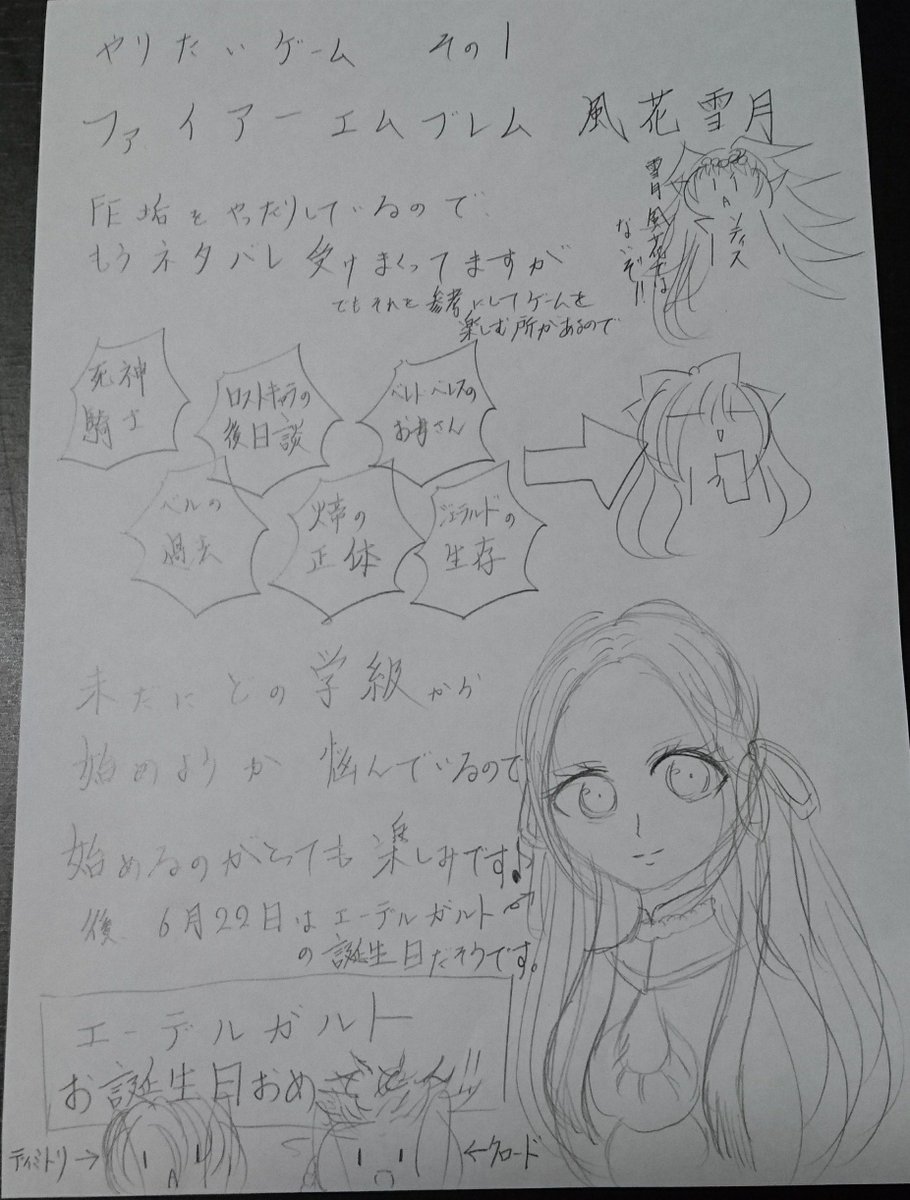 やりたいゲーム その1
ファイアーエムブレム 風花雪月
雪月風花では
なぞ!!
ソティス
FE垢をやったりしているので、
もうネタバレ受けまくってますが
でもそれを参考にしてゲームを
楽しむ所があるので
死神
騎士
ロストキャラの
後日談
ベレト・ベレスの
お母さん
ベルの
過去
炎帝の
正体
ジェラルドの
生存
未だにどの学級から
始めようか 悩んでいるので
始めるのがとても楽しみです♪
後 6月22日はエーデルガルト
の誕生日だそうです。
エーデルガルト
お誕生日おめでとう!!
ディミトリ→
←クロード